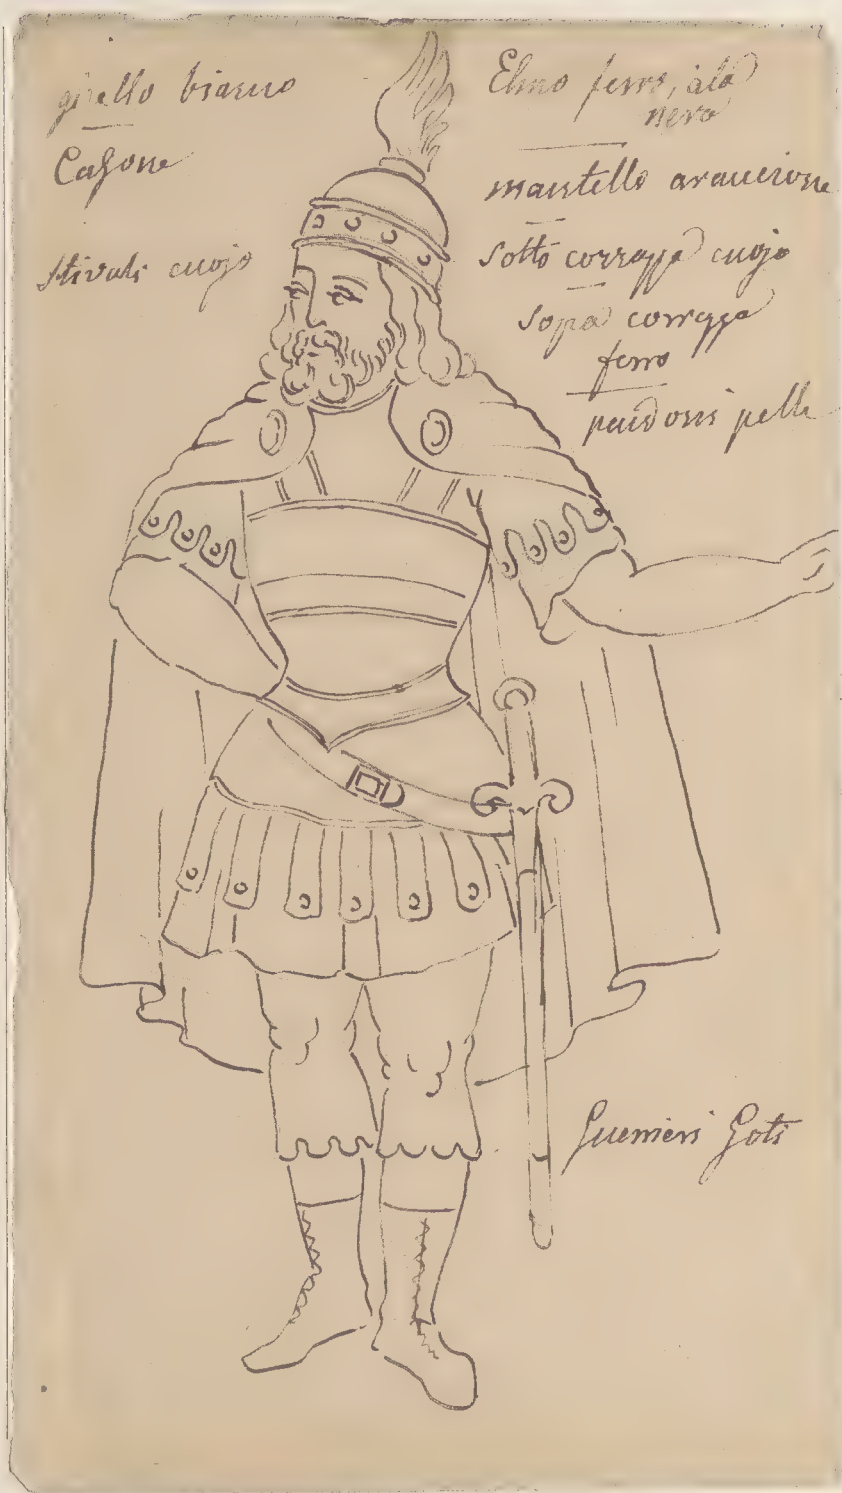 girello bianco
Casone
stivali cuojo
Elmo ferro, ala
nera
mantello arancione
sotto corrazza cuojo
sopra corrazza
ferro
pelle
Guerrieri Goti